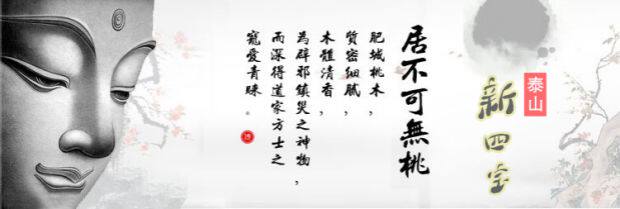 泰山
新四宝
居不可無桃
肥城桃木，
質密細膩，
木體清香，
為辟邪鎮災之神物，
而深得道家方士之
寵愛青睞。